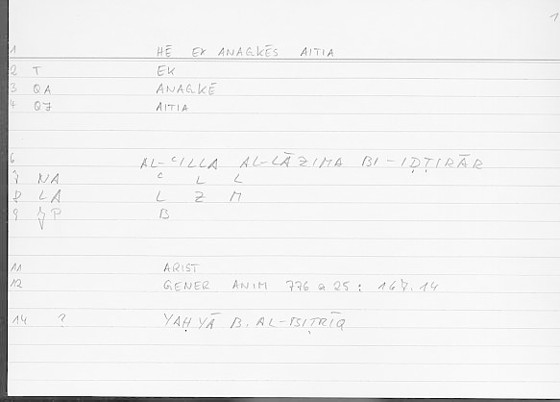 1
1 HĒ EK ANAGKĒS AITIA
2 T EK
3 QA ANAGKĒ
4 QJ AITIA
6 AL-ʿILLA AL-LĀZIMA BI-IḌṬIRĀR
7 NA ʿ L L
8 LA L Z M
9 JP B
11 ARIST
12 GENER ANIM 776 a 25 : 167.14
14 ? YAḤYĀ B. AL-BIṬRĪQ